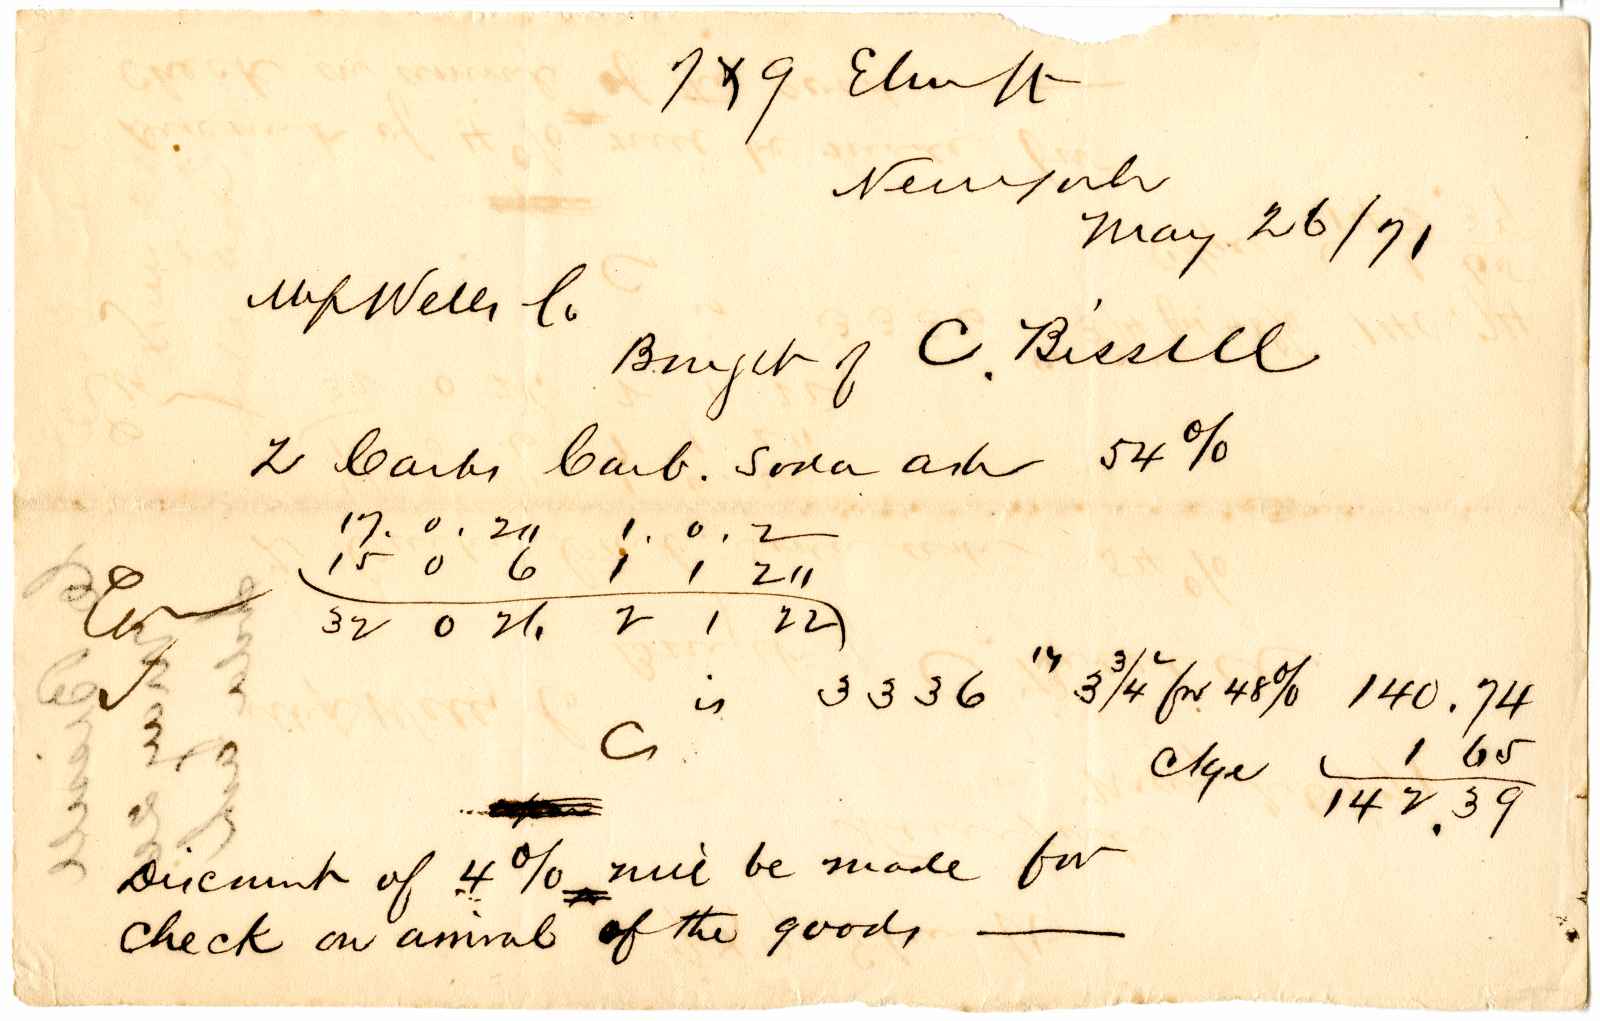 7 & 9 Elm St
New York
May 26/71
Wells Co
Bought of C. Bissell
2 Casks Carb. Soda ash 54%
17. 0. 20 1. 0. 2
15 0 6 1 1 20
32 0 26 2 1 22
is 3336 lb 3 3/4 c for 48% 140.74
Ctge 1 65
142.39
Discount of 4% will be made for
check on arrival of the goods —